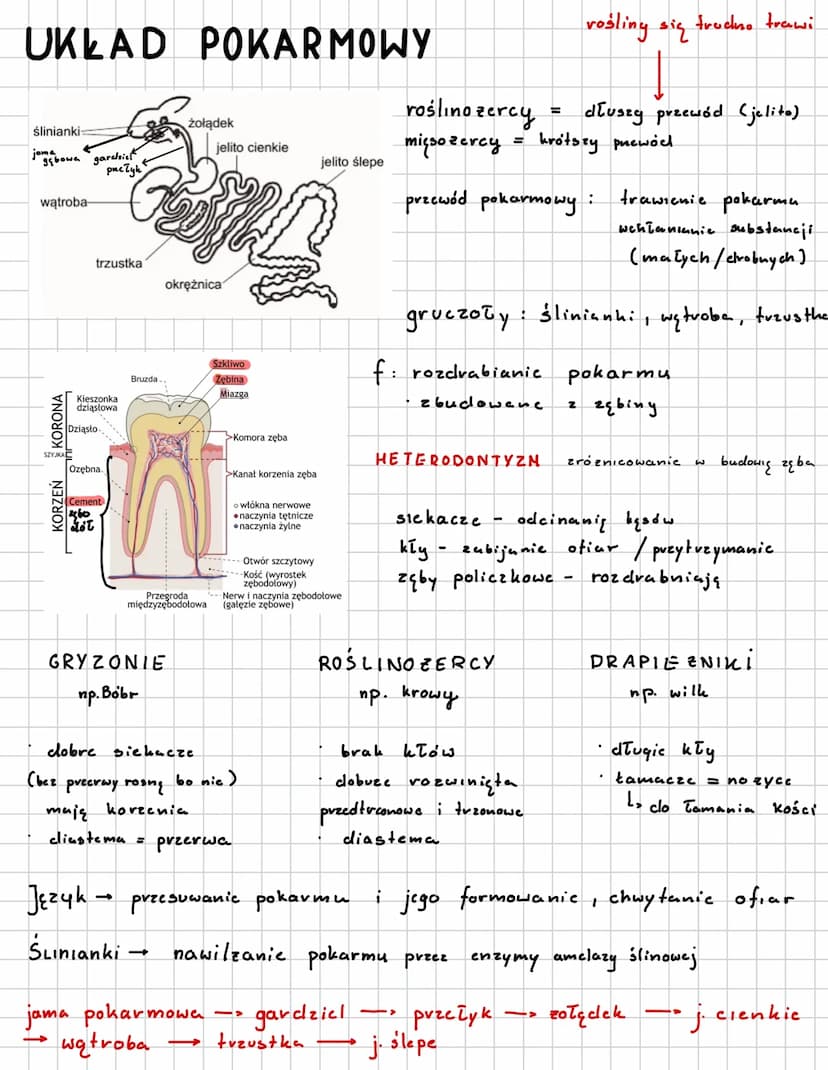 UKŁAD POKARMOWY
rośliny się trudno trawi
roślinożercy = dłuszy przewód (jelito)
mięsożercy = krótszy przewód
ślinianki
jama gębowa
gardziel
przełyk
żołądek
jelito cienkie
jelito ślepe
wątroba
trzustka
okrężnica
przewód pokarmowy : trawienie pokarmu
wchłanianie substancji
(małych/drobnych)
gruczoły : ślinianki, wątroba, trzustka
Bruzda
Szkliwo
Zębina
Miazga
KORONA
Kieszonka
dziąsłowa
Dziąsło
SZYJKA
Ozębna
KORZEŃ
Cement
zębo
dół
Komora zęba
Kanał korzenia zęba
włókna nerwowe
naczynia tętnicze
naczynia żylne
Otwór szczytowy
Kość (wyrostek
zębodołowy)
Przegroda
międzyzębodołowa
Nerw i naczynia zębodołowe
(gałęzie zębowe)
f: rozdrabianie pokarmu
· zbudowane z zębiny
HETERODONTYZM zróżnicowanie w budowię zęba
siekacze - odcinanię kęsów
kły - zabijanie ofiar / przytrzymanie
zęby policzkowe - rozdrabniają
GRYZONIE
np. Bóbr
· dobre siekacze
(bez przerwy rosną bo nie)
mają korzenia
· diastema = przerwa
ROŚLINOŻERCY
np. krowy
· brak kłów
· dobrze rozwinięta
przedtrzonowe i trzonowe
· diastema
DRAPIEŻNIKI
np. wilk
· długie kły
· łamacze = nożyce
↳ do łamania kości
Język → przesuwanie pokarmu i jego formowanie, chwytanie ofiar
Ślinianki → nawilżanie pokarmu przez enzymy amelazy ślinowej
jama pokarmowa → gardziel → przełyk → żołądek → j. cienkie
→ wątroba → trzustka → j. ślepe